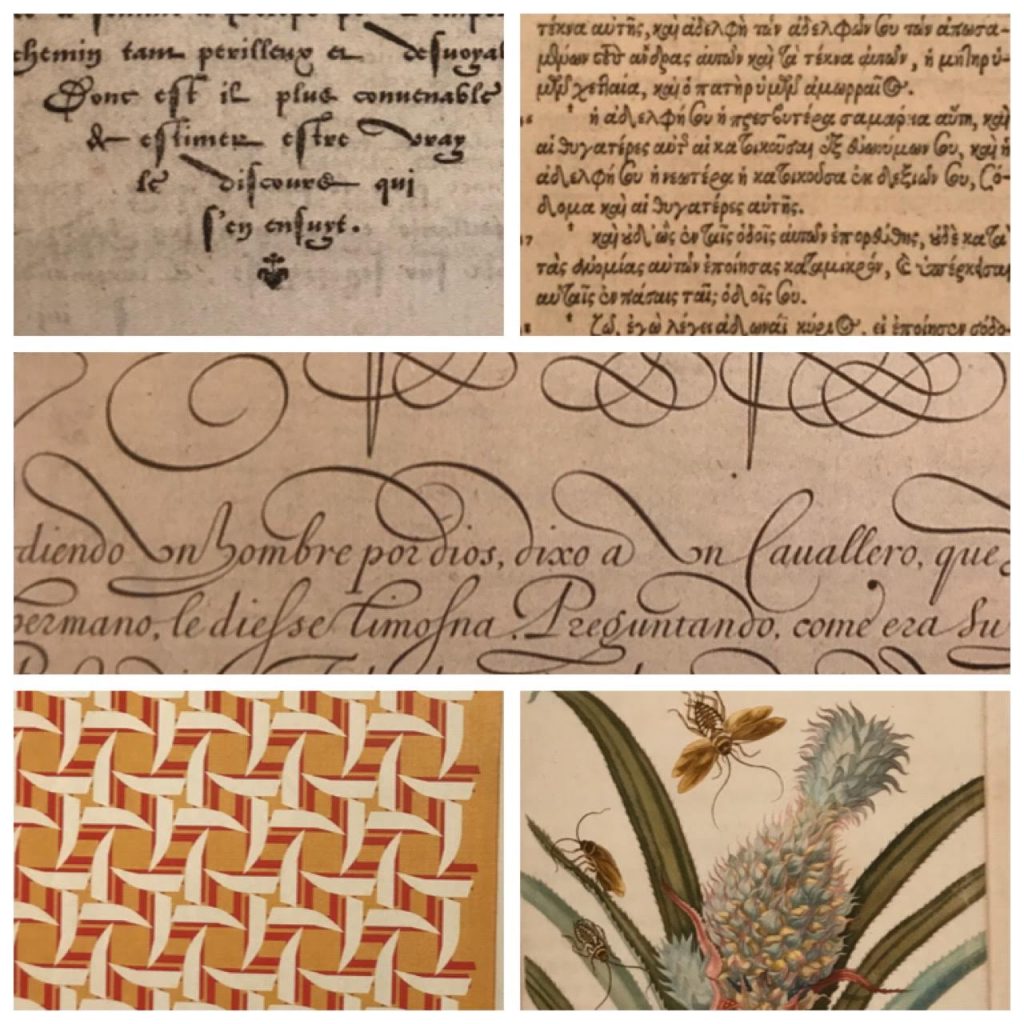 chemin tant perilleux et
Donc est il plus convenable
& estimer estre vray
le discours qui
s'en ensuyt.
τέκνα αὐτῆς, καὶ ἀδελφὴ τῶν ἀδελφῶν σου τῶν ἀπωσα-
μένων τοὺς ἄνδρας αὐτῶν καὶ τὰ τέκνα αὐτῶν, ἡ μήτηρ ὑ-
μῶν χετταία, καὶ ὁ πατὴρ ὑμῶν ἀμορραῖος.
ἡ ἀδελφή σου ἡ πρεσβυτέρα σαμάρεια αὕτη, καὶ
αἱ θυγατέρες αὐτῆς αἱ κατοικοῦσαι ἐξ εὐωνύμων σου, καὶ ἡ
ἀδελφή σου ἡ νεωτέρα ἡ κατοικοῦσα ἐκ δεξιῶν σου, σό-
δομα καὶ αἱ θυγατέρες αὐτῆς.
17 καὶ οὐδ' ὣς ἐν ταῖς ὁδοῖς αὐτῶν ἐπορεύθης, οὐδὲ κατὰ
τὰς ἀνομίας αὐτῶν ἐποίησας καταμικρόν, καὶ ὑπέρκεισαι
αὐταῖς ἐν πάσαις ταῖς ὁδοῖς σου.
ζῶ, ἐγὼ λέγει ἀδωναῒ κύριος, εἰ ἐποίησεν σόδο-
diendo vn hombre por dios, dixo a vn Cauallero, que
hermano, le diesse limosna. Preguntando, come era su